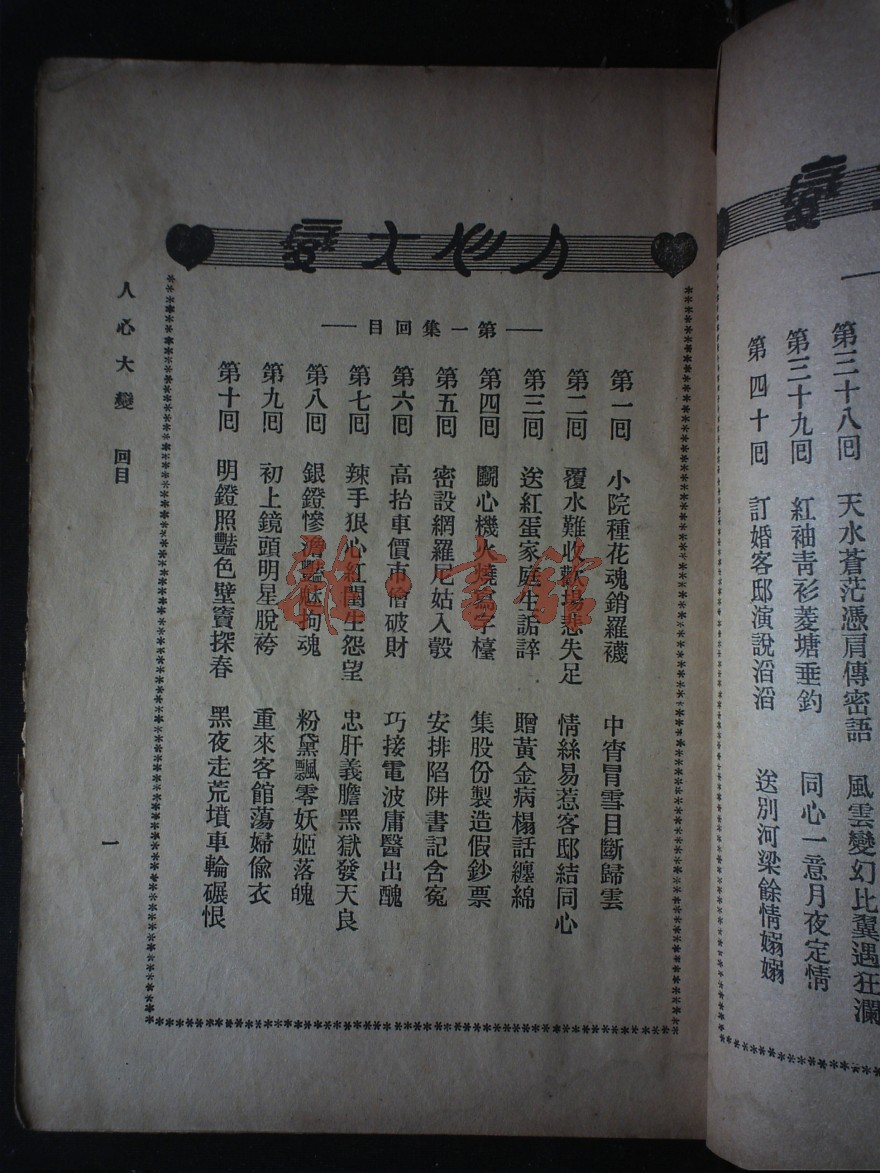 變大心人
第一集回目
第一回 小院種花魂銷羅襪 中宵冒雪目斷歸雲
第二回 覆水難收歡場悲失足 情絲易惹客邸結同心
第三回 送紅蛋家庭生詬誶 贈黃金病榻話纏綿
第四回 鬭心機火燒寫字檯 集股份製造假鈔票
第五回 密設網羅尼姑入彀 安排陷阱書記含冤
第六回 高抬車價市儈破財 巧接電波庸醫出醜
第七回 辣手狠心紅閨生怨望 忠肝義膽黑獄發天良
第八回 銀鐙慘澹豔魅拘魂 粉黛飄零妖姬落魄
第九回 初上鏡頭明星脫袴 重來客館蕩婦偷衣
第十回 明鐙照豔色壁竇探春 黑夜走荒墳車輪碾恨
人心大變 回目
一
變
第三十八回 天水蒼茫憑肩傳密語 風雲變幻比翼遇狂瀾
第三十九回 紅袖青衫菱塘垂釣 同心一意月夜定情
第四十回 訂婚客邸演說滔滔 送別河梁餘情嫋嫋